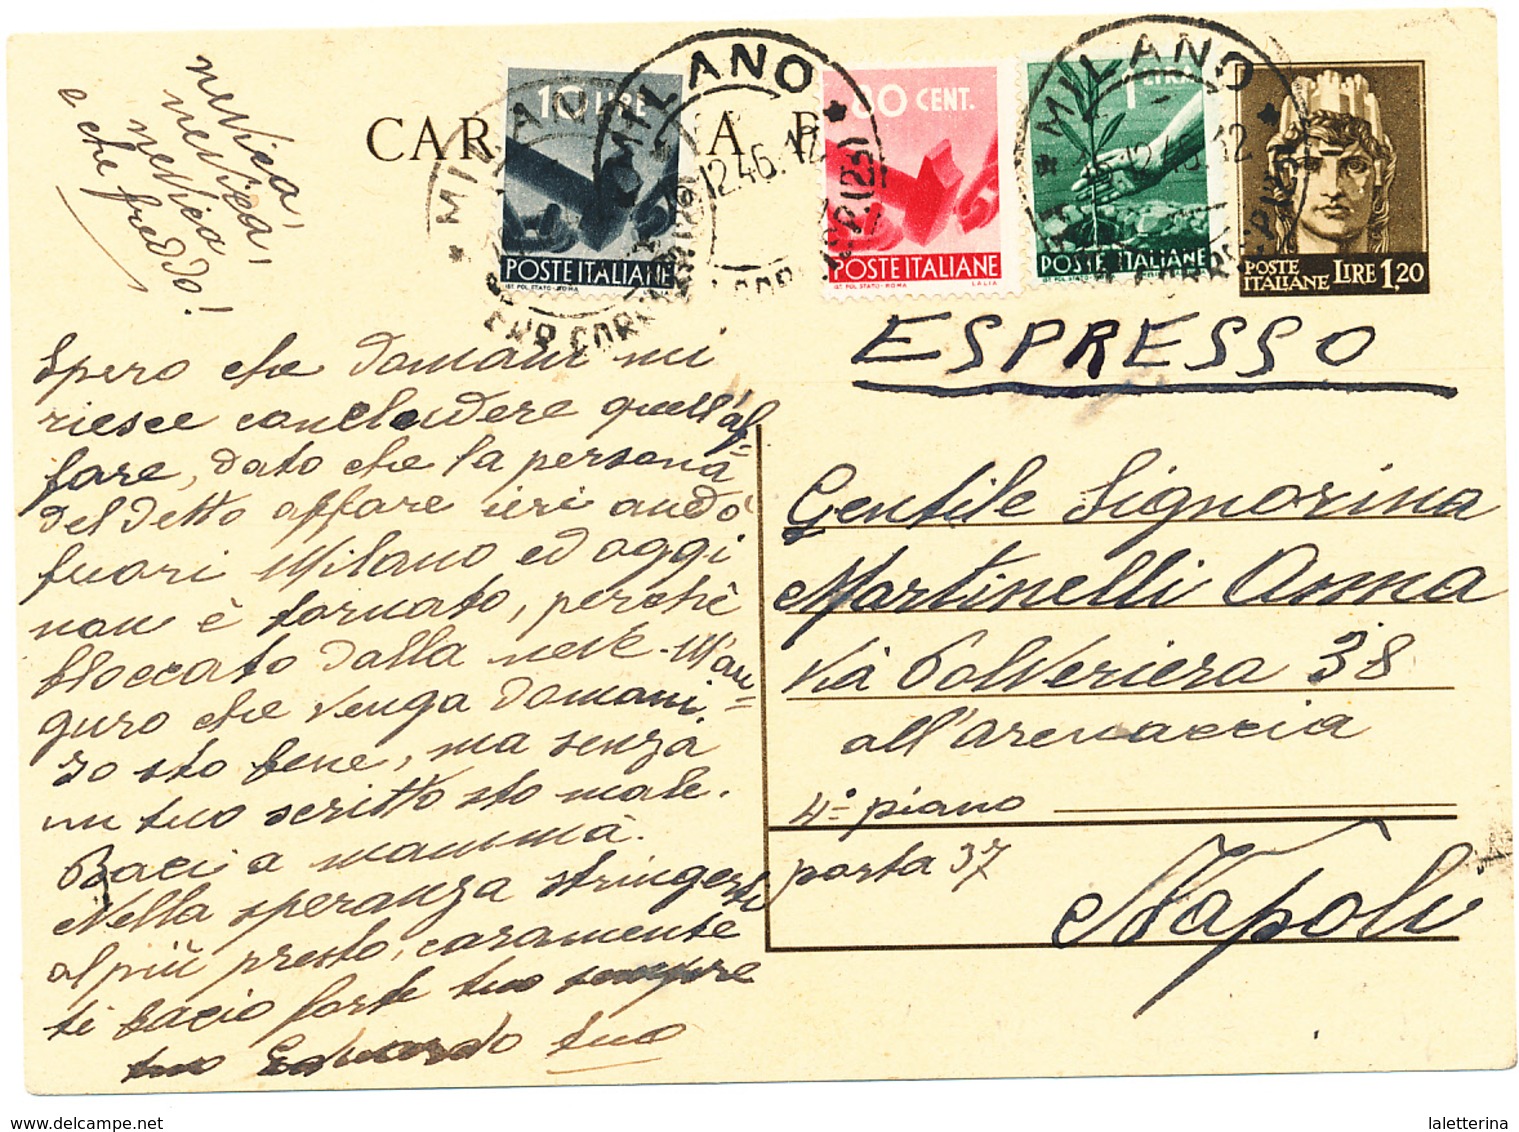 nevica,
nevica,
nevica
e che freddo!
CAR A P
10 LIRE
POSTE ITALIANE
IST. POL. STATO - ROMA
80 CENT.
POSTE ITALIANE
IST. POL. STATO - ROMA LALIA
1 LIRA
POSTE ITALIANE
POSTE ITALIANE LIRE 1,20
MILANO
MILANO
MILANO
12.46.12
ESPRESSO
Spero che domani mi
riesce concludere quell'af-
fare, dato che la persona
del detto affare ieri andò
fuori Milano ed oggi
non è tornato, perchè
bloccato dalla neve. M'au-
guro che venga domani.
Io sto bene, ma senza
un tuo scritto sto male.
Baci a mammà.
Nella speranza stringerti
al più presto, caramente
ti bacio forte tuo sempre
tuo Eduardo tuo
Gentile Signorina
Martinelli Anna
Via Polveriera 38
all'arenaccia
4° piano
porta 37
Napoli
www.delcampe.net
laletterina